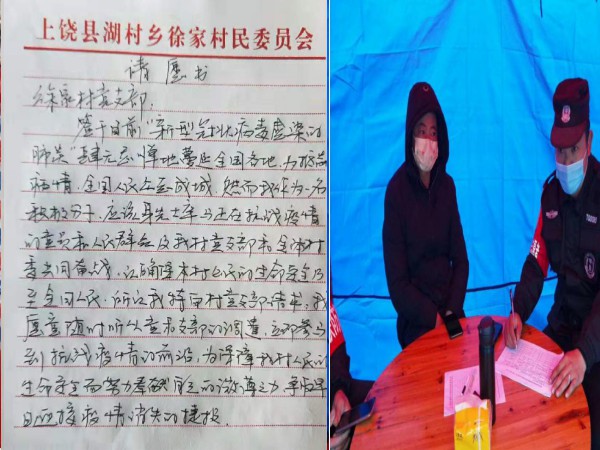 上饶县湖村乡徐家村民委员会
请愿书
徐家村党支部：
鉴于目前"新型冠状病毒感染的
肺炎"肆无忌惮地蔓延全国各地，为抗击
病情，全国人民众志成城，然而我作为一名
积极分子，应该身先士卒与正在抗战疫情
的党员和人民群众及我村党支部和全体村
委共同奋战，以确保本村人民的生命安全乃
至全国人民，所以我特向村党支部请求，我
愿意随时听从党和支部的调遣，立即参与
到抗战疫情的前沿，为保障我村人民的
生命安全而努力奉献自己的微薄之力，争取早
日迎接疫情消失的捷报。